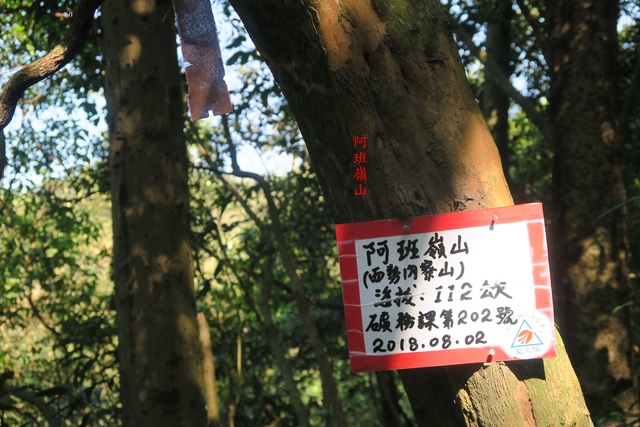 阿
班
嶺
山
阿班嶺山
(西勢內寮山)
海拔:112公尺
礦務課第202號
2018.08.02